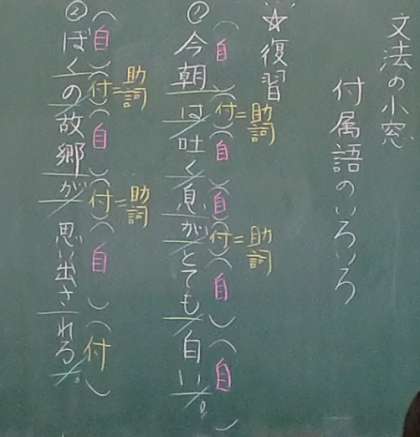 文法の小窓
付属語のいろいろ
☆復習
(自)(付=助詞)(自)(自)(付=助詞)(自)(自)
①今朝は/吐く/息が/とても/白い/。
(自)(付=助詞)(自)(付=助詞)(自)(付)
②ぼくの/故郷が/思い出される/。